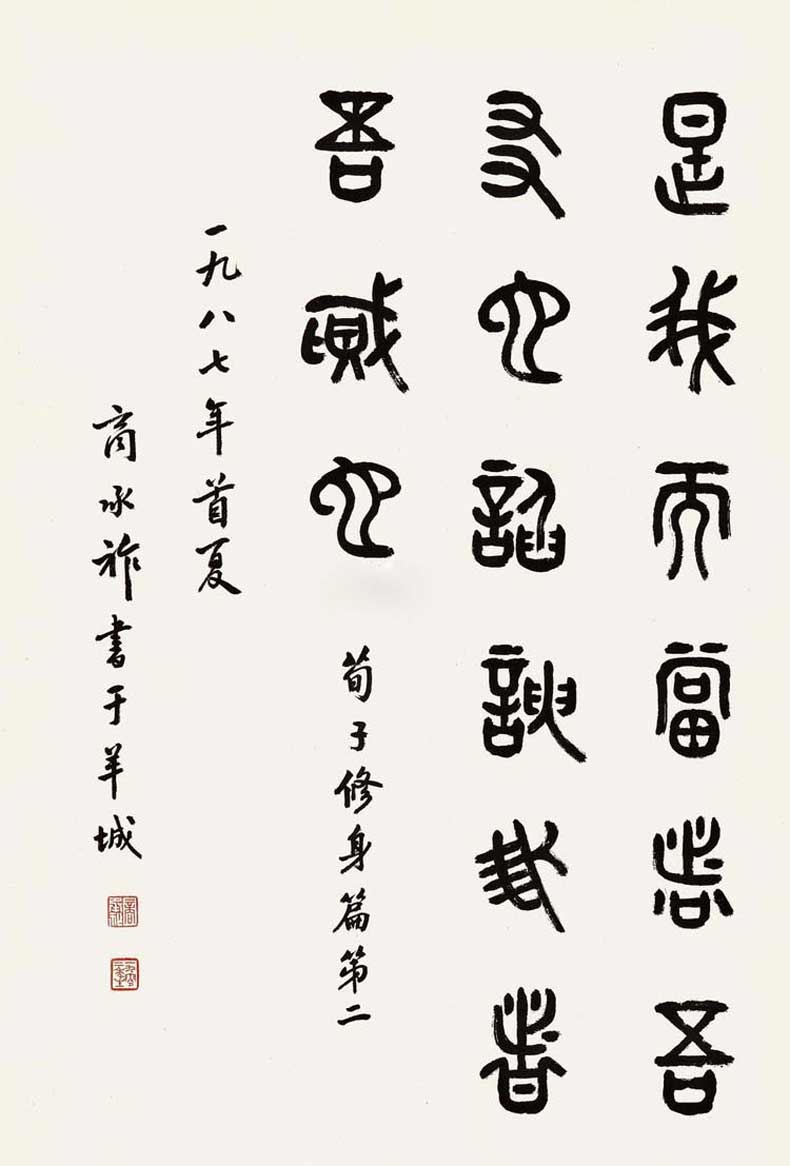 是我而當者吾
友也諂諛我者
吾賊也 荀子修身篇第二
一九八七年首夏
商承祚書于羊城